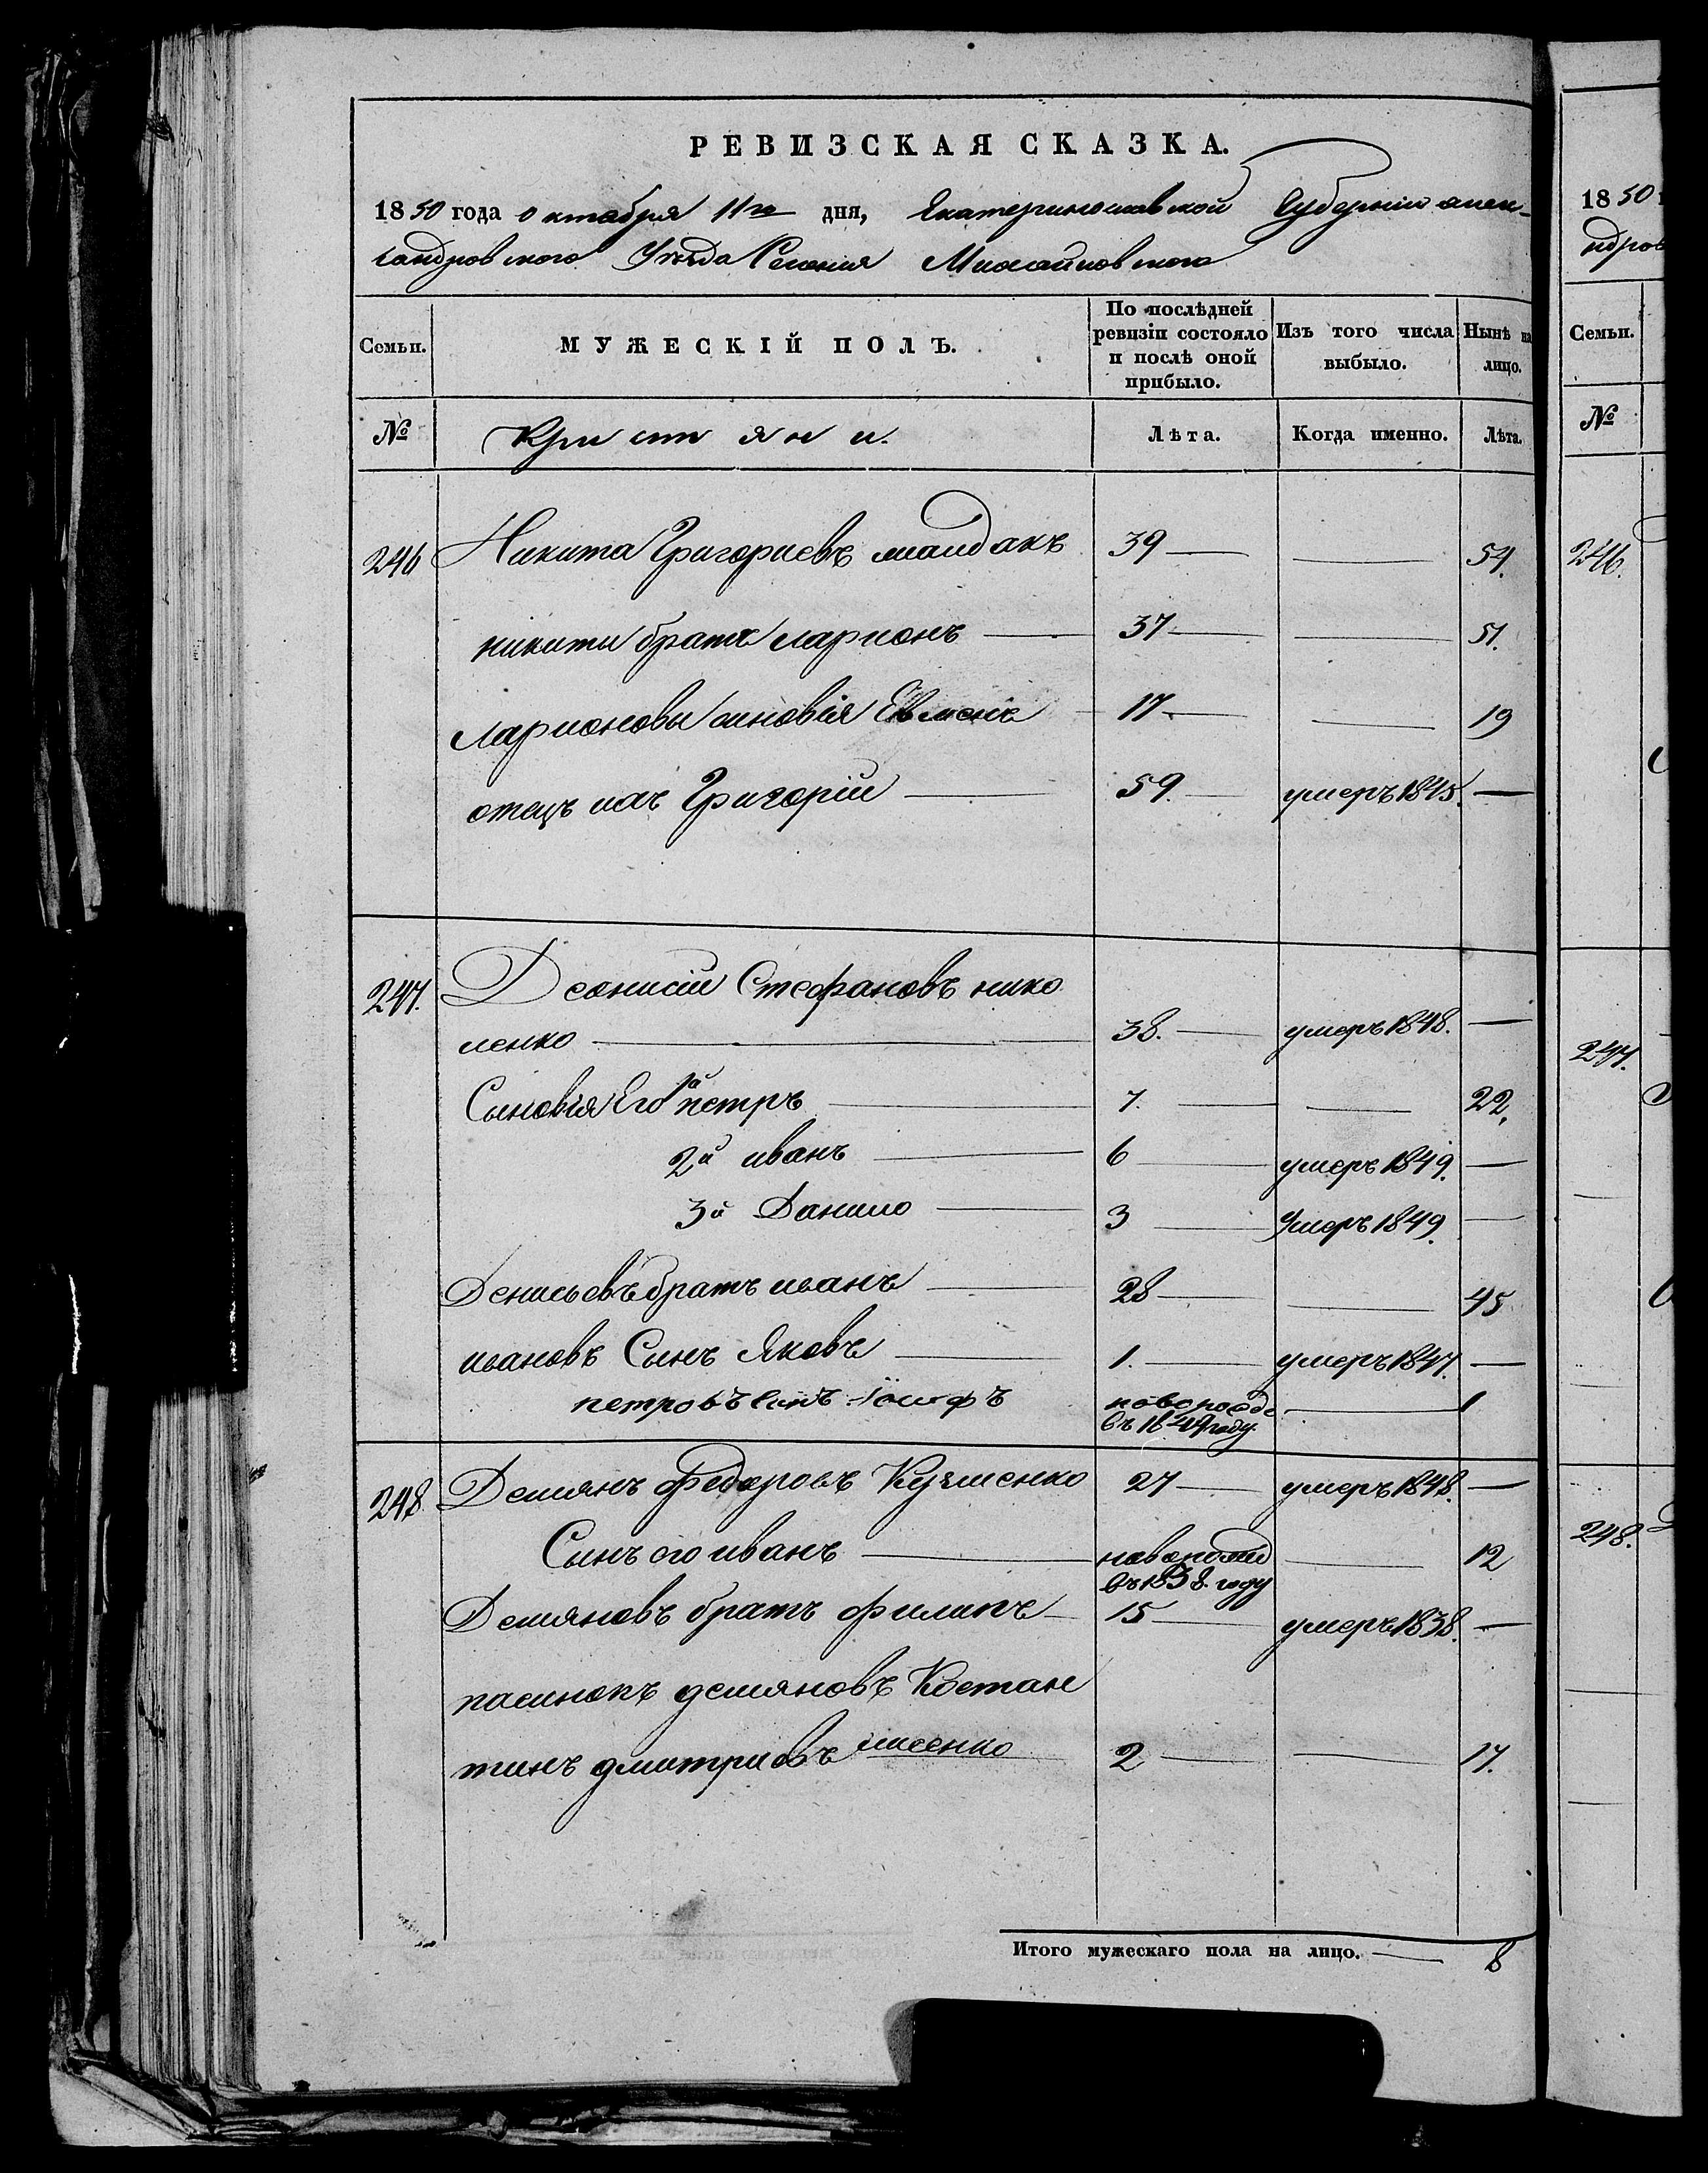 РЕВИЗСКАЯ СКАЗКА.
1850 года октября 11го дня, Екатеринославской Губернии алек-
сандровского Уезда Селения Михайловского
Семьи. МУЖЕСКІЙ ПОЛЪ. По послѣдней ревизіи состояло и послѣ оной прибыло. Изъ того числа выбыло. Нынѣ на лицо.
№ Кристяни. Лѣта. Когда именно. Лѣта.
246 Никита Григориевъ 39 — — 54.
никити братъ ларионъ — 37 — — 51.
ларионовы синовія Евменъ 17 — — 19
отецъ ихъ Григорій — 59. — умеръ 1845. —
247. Деонисій Стефановъ нико
ленко — 38. — умеръ 1848. —
Сыновія Его 1й петръ — 7. — — 22.
2й иванъ — 6 — умеръ 1849. —
3й Данило — 3 — Умеръ 1849. —
Денисьевъ братъ иванъ — 28 — — 45
ивановъ Сынъ Яковъ — 1. — умеръ 1847. —
петровъ синъ Іосифъ новорожде — 1
въ 1849 году.
248. Демянъ Федоровъ Кузменко 27 — умеръ 1848. —
Сынъ его иванъ — новорожд — 12
въ 1838. году
Демяновъ братъ Филипъ — 15 — умеръ 1838. —
пасинокъ демяновъ Костан
тинъ дмитриевъ лисенко 2 — — 17.
Итого мужескаго пола на лицо. — 8
1850
ндров
Семьи.
№
246.
247.
248.